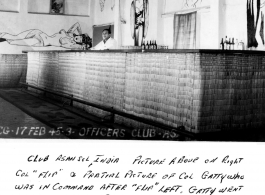 CG-17 FEB 45-3- OFFICERS CLUB -AS
CLUB ASANSOL, INDIA PICTURE ABOVE ON RIGHT
COL "FLIP" & PARTIAL PICTURE OF COL GATTY WHO
WAS IN COMMAND AFTER "FLIP" LEFT. GATTY WENT